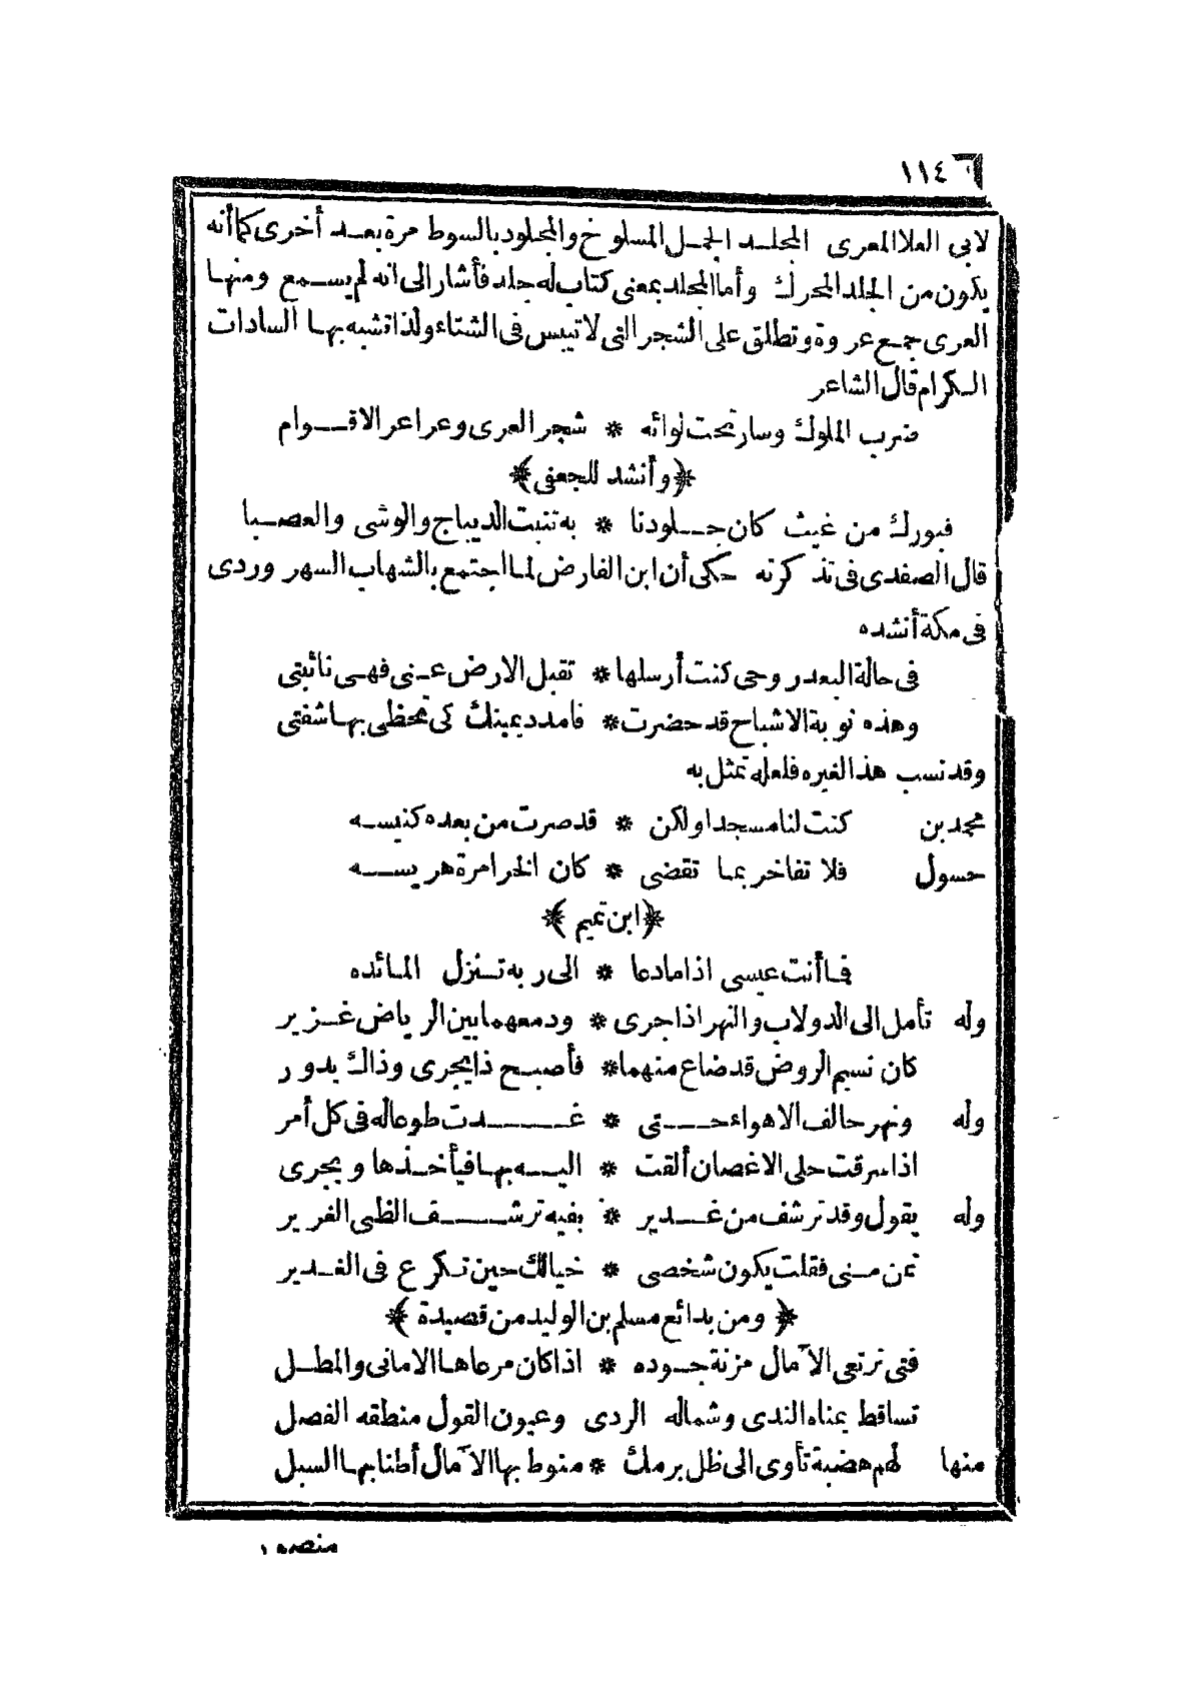 ١١٤
لابى العلا المعرى المجلد الجمل المسلوخ والمجلود بالسوط مرة بعد أخرى كما أنه
يكون من الجلد المحرك وأما المجلد بمعنى كتاب له جلد فأشار الى انه لم يسمع ومنها
العرى جمع عروة وتطلق على الشجر التى لا تيبس فى الشتاء ولذا تشبه بها السادات
الكرام قال الشاعر
ضرب الملوك وسار تحت لوائه * شجر العرى وعراعر الاقوام
﴿وأنشد للجعفى﴾
فبورك من غيث كان جلودنا * به تنبت الديباج والوشى والعصبا
قال الصفدى فى تذكرته حكى أن ابن الفارض لما اجتمع بالشهاب السهروردى
فى مكة أنشده
فى حالة البعد روحى كنت أرسلها * تقبل الارض عنى فهى نائبتى
وهذه نوبة الاشباح قد حضرت * فامدد يمينك كى تحظى بها شفتى
وقد نسب هذا لغيره فلعله تمثل به
محمد بن كنت لنا مسجدا ولكن * قد صرت من بعده كنيسه
حسول فلا تفاخر بما تقضى * كان الخرا مرة هريسه
﴿ابن تميم﴾
فما أنت عيسى اذا ما دعا * الى ربه تنزل المائده
وله تأمل الى الدولاب والنهر اذا جرى * ودمعهما بين الرياض غزير
كان نسيم الروض قد ضاع منهما * فأصبح ذا يجرى وذاك يدور
وله ونهر حالف الاهواء حتى * غدت طوعا له فى كل أمر
اذا سرقت حلى الاغصان ألقت * اليه بها فيأخذها ويجرى
وله يقول وقد ترشف من غدير * بفيه ترشف الظبى الغرير
تمن منى فقلت يكون شخصى * خيالك حين تكرع فى الغدير
﴿ومن بدائع مسلم بن الوليد من قصيدة﴾
فتى ترتعى الآمال مزنة جوده * اذا كان مرعاها الامانى والمطل
تساقط يمناه الندى وشماله الردى وعيون القول منطقه الفصل
منها لهم هضبة تأوى الى ظل برمك * منوط بها الآمال أطنابها السبل